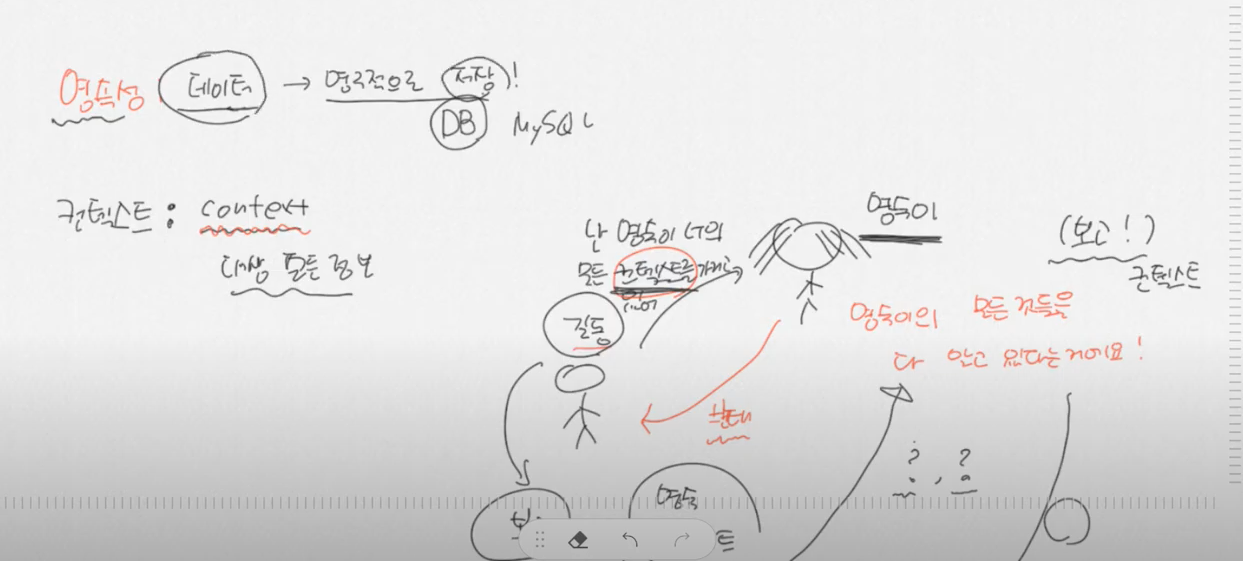 영속성 데이터 → 영구적으로 저장!
DB MySQL
컨텍스트 : context
대상 모든 정보
난 영득이 너의
모든 컨텍스트를
영득이
(보고!)
컨텍스트
길동
영득이의 모든 것들을
다 알고 있다는 거에요!
? , ?
영득
트